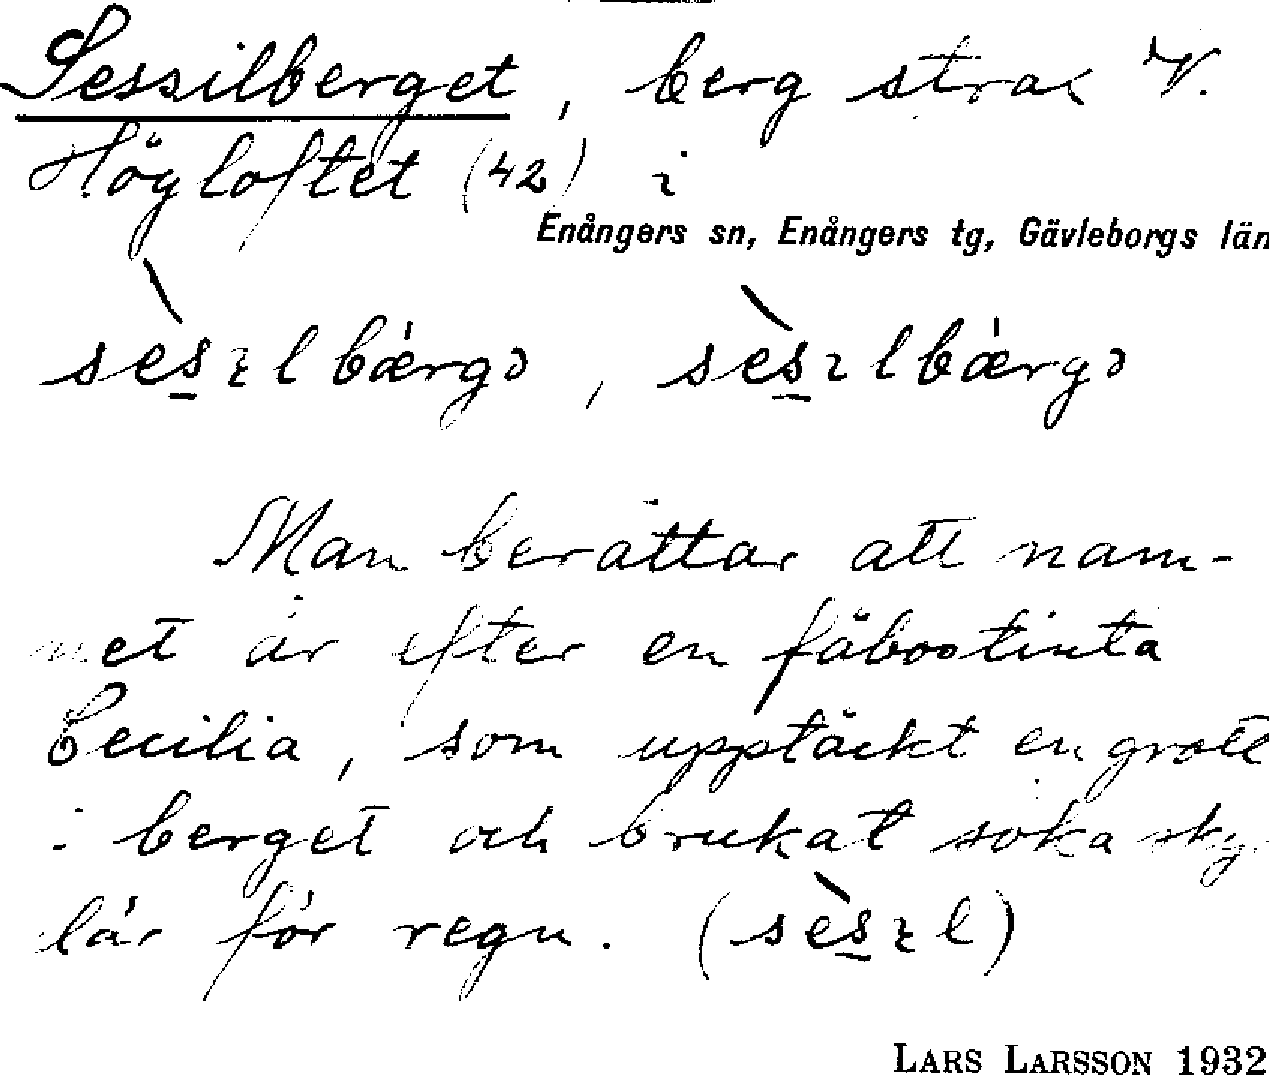 Sessilberget, berg strax V.
Högloftet (42) i
Enångers sn, Enångers tg, Gävleborgs län
sèsɩlbǽrgə, sèsɩlbǽrgə
Man berättar att nam-
net är efter en fäbostinta
Cecilia, som upptäckt en grott
i berget och brukat söka sky
där för regn. (sèsɩl)
LARS LARSSON 1932